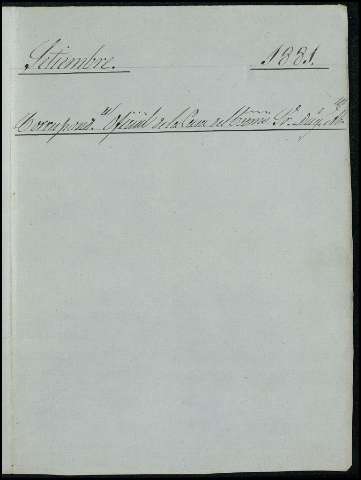 Setiembre. 1881.
Correspond.ª Oficial de la Casa del Exmo. Sr.